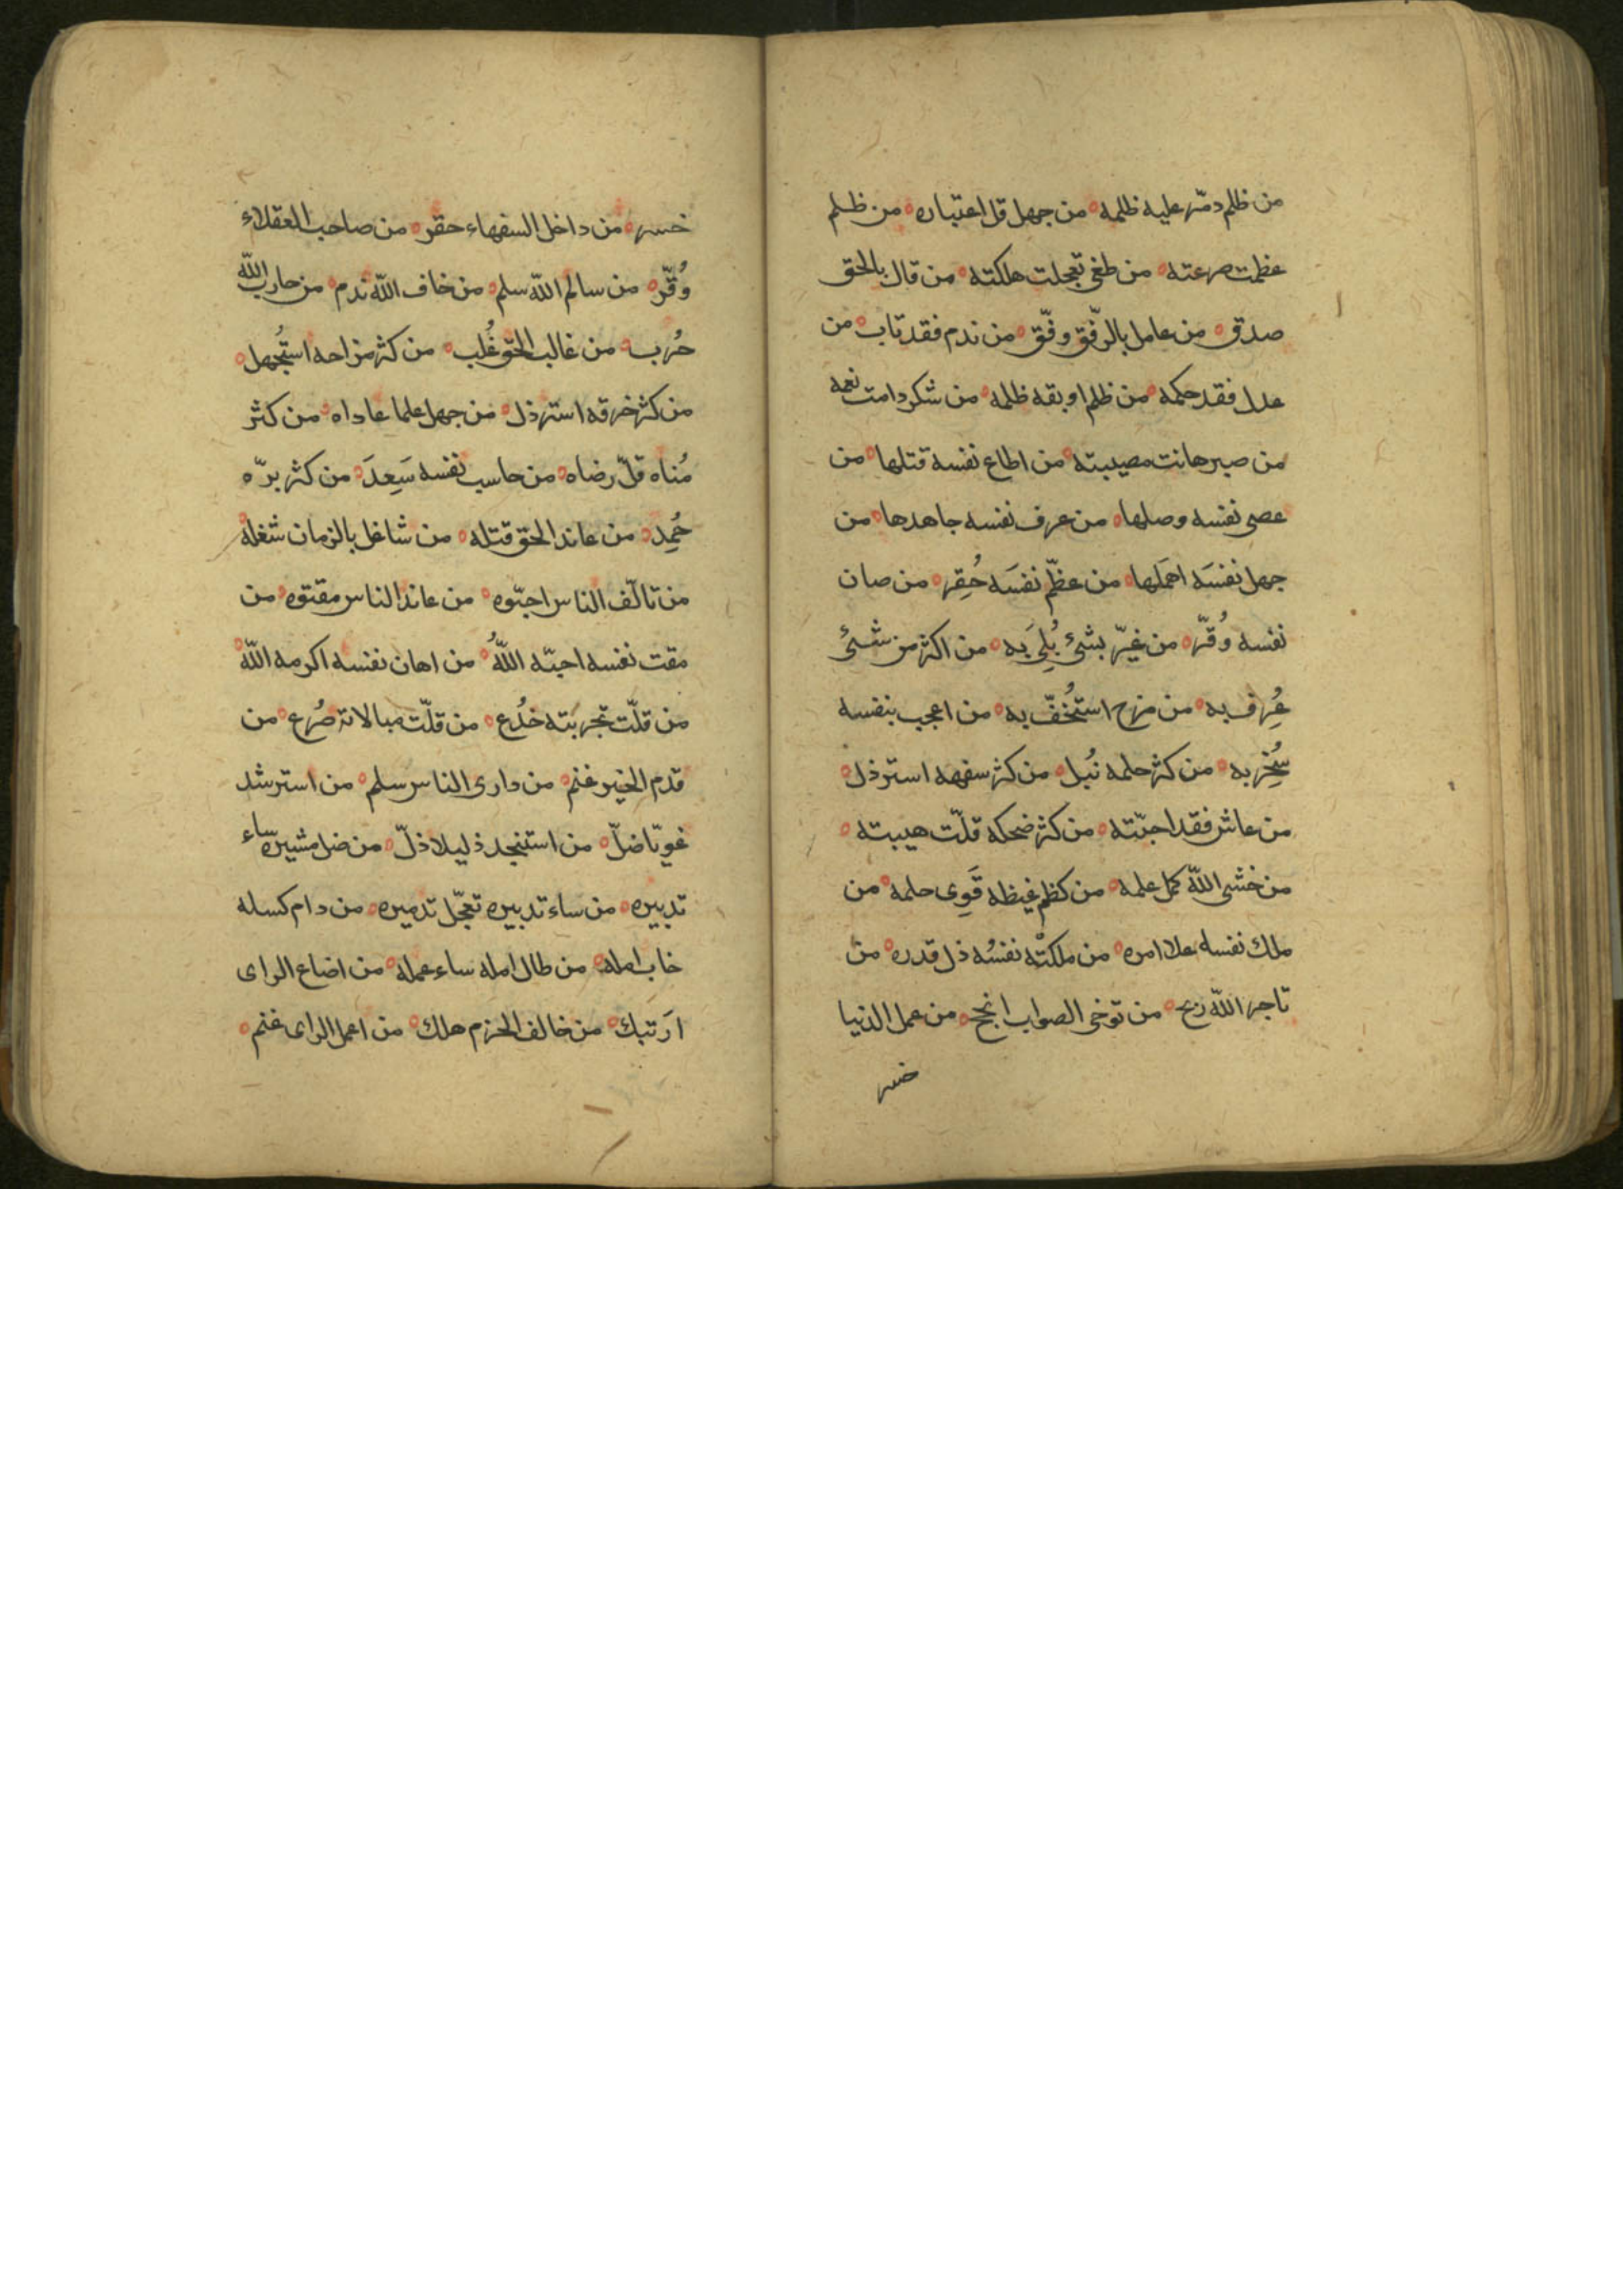 من ظلم دمّر عليه ظلمه ه من جهل قل اعتباره ه من ظلم
عظمت صرعته ه من طغى تعجلت هلكته ه من قال بالحق
صدق ه من عامل بالرفق وفّق ه من ندم فقد تاب ه من
عدل فقد حكمه ه من ظلم اوبقه ظلمه ه من شكر دامت نعمه
من صبر هانت مصيبته ه من اطاع نفسه قتلها ه من
عصى نفسه وصلها ه من عرف نفسه جاهدها ه من
جهل نفسَه اهمَلها ه من عظّم نفسَه حُقِر ه من صان
نفسه وُقّر ه من غيّر بشئ بُلِىَ به ه من اكثر من شئ
عُرِف به ه من مزح استُخفّ به ه من اعجب بنفسه
سُخِر به ه من كثر حلمه نُبل ه من كثر سفهه استرذل ه
من عاشر فقد احبّته ه من كثر ضحكه قلّت هيبته ه
من خشى اللّه كمل علمه ه من كظم غيظه قَوِى حلمه ه من
ملك نفسه علا امره ه من ملكتْه نفسُه ذل قدره ه من
تاجر اللّه ربح ه من توخى الصواب انجح ه من عمل الدنيا
خسر
خسر ه من داخل السفهاء حقر ه من صاحب العقلاء
وُقّر ه من سالم اللّه سلم ه من خاف اللّه ندم ه من حارب اللّه
حُرب ه من غالب الحق غُلب ه من كثر مزاحه استُجهل ه
من كثر خرقه استرذل ه من جهل علما عاداه ه من كثر
مُناه قلّ رضاه ه من حاسب نفسه سَعِدَ ه من كثر برّه
حُمِد ه من عاند الحق قتله ه من شاغل بالزمان شغله
من تالّف الناس احبّوه ه من عاند الناس مقتوه ه من
مقت نفسه احبّه اللّهُ ه من اهان نفسه اكرمه اللّه ه
من قلّت تجربته خُدع ه من قلّت مبالاته صُرع ه من
قدم الخير غنم ه من دارى الناس سلم ه من استرشد
غويّا ضلّ ه من استنجد ذليلا ذلّ ه من ضل مشيره ساء
تدبيره ه من ساء تدبيره تعجّل تدميره ه من دام كسله
خاب امله ه من طال امله ساء عمله ه من اضاع الراى
ارتبك ه من خالف الحزم هلك ه من اعمل الراى غنم ه